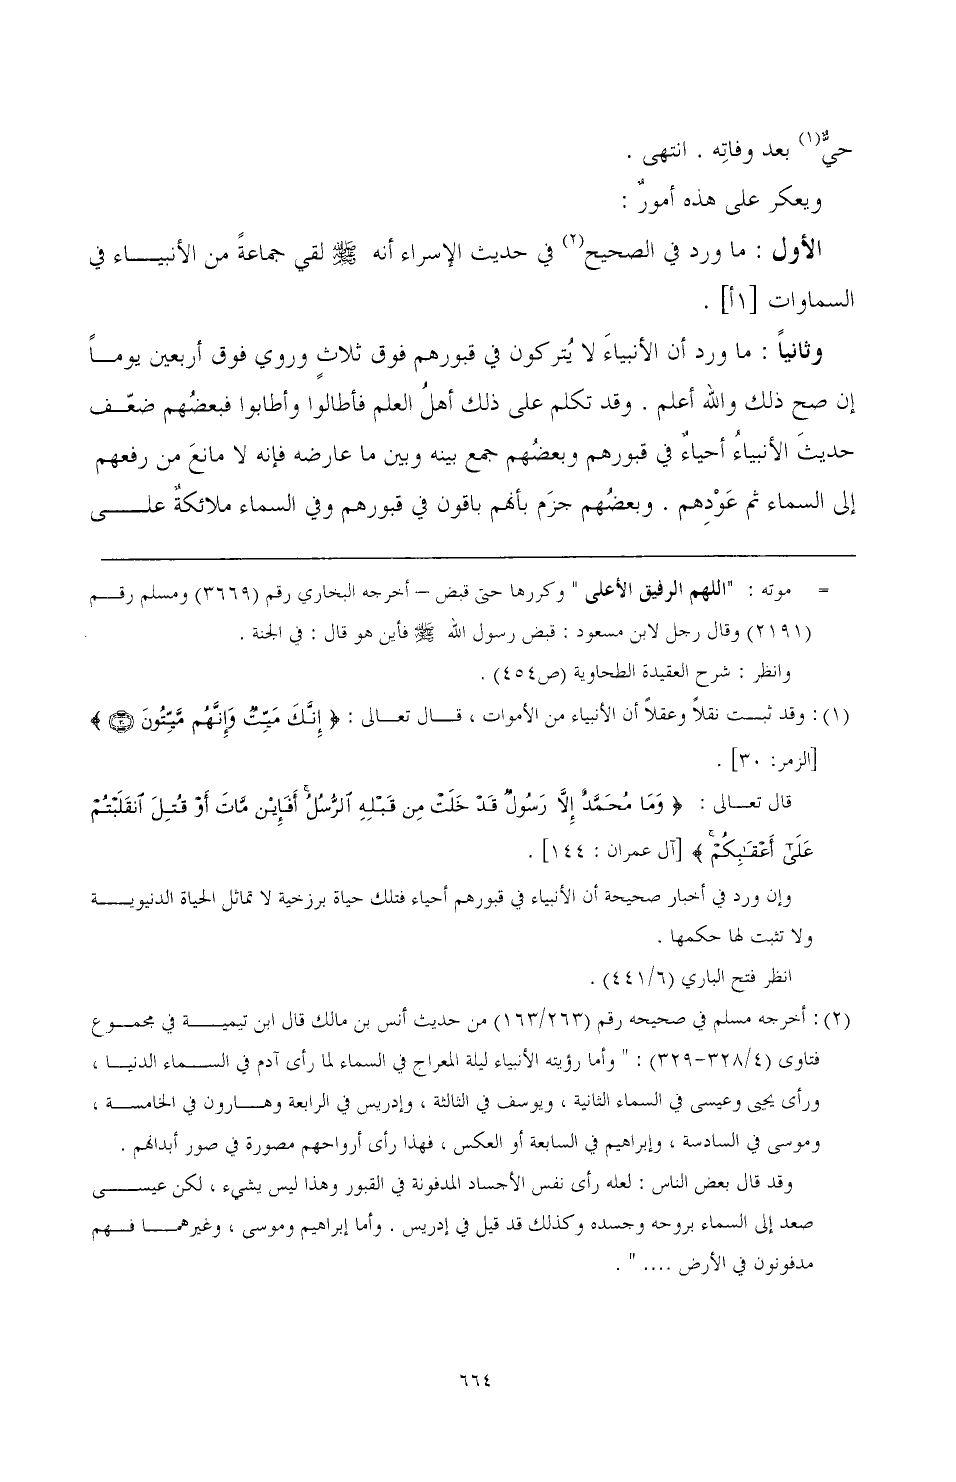 حيٌّ(١) بعد وفاتِه . انتهى .
ويعكر على هذه أمورٌ :
الأول : ما ورد في الصحيح(٢) في حديث الإسراء أنه ﷺ لقي جماعةً من الأنبيـــاء في
السماوات [١أ] .
وثانياً : ما ورد أن الأنبياءَ لا يُتركون في قبورهم فوق ثلاثٍ وروي فوق أربعين يومـــاً
إن صح ذلك والله أعلم . وقد تكلم على ذلك أهلُ العلم فأطالوا وأطابوا فبعضُهم ضعّـــف
حديثَ الأنبياءُ أحياءٌ في قبورهم وبعضُهم جمع بينه وبين ما عارضه فإنه لا مانعَ من رفعهم
إلى السماء ثم عَوْدِهم . وبعضُهم جزَم بأنهم باقون في قبورهم وفي السماء ملائكةٌ علـــى
= موته : "اللهم الرفيق الأعلى " وكررها حتى قبض – أخرجه البخاري رقم (٣٦٦٩) ومسلم رقـــم
(٢١٩١) وقال رجل لابن مسعود : قبض رسول الله ﷺ فأين هو قال : في الجنة .
وانظر : شرح العقيدة الطحاوية (ص٤٥٤) .
(١): وقد ثبـــت نقلاً وعقلاً أن الأنبياء من الأموات ، قـــال تعـــالى : ﴿ إِنَّكَ مَيِّتٌ وَإِنَّهُم مَّيِّتُونَ ۝٣٠ ﴾
[الزمر: ٣٠] .
قال تعـــالى : ﴿ وَمَا مُحَمَّدٌ إِلَّا رَسُولٌ قَدْ خَلَتْ مِن قَبْلِهِ ٱلرُّسُلُ ۚ أَفَإِيْن مَّاتَ أَوْ قُتِلَ ٱنقَلَبْتُمْ
عَلَىٰٓ أَعْقَـٰبِكُمْ ۚ ﴾ [آل عمران : ١٤٤] .
وإن ورد في أخبار صحيحة أن الأنبياء في قبورهم أحياء فتلك حياة برزخية لا تماثل الحياة الدنيويـــة
ولا تثبت لها حكمها .
انظر فتح الباري (٤٤١/٦) .
(٢): أخرجه مسلم في صحيحه رقم (١٦٣/٢٦٣) من حديث أنس بن مالك قال ابن تيميـــة في مجمـــوع
فتاوى (٣٢٨/٤-٣٢٩) : " وأما رؤيته الأنبياء ليلة المعراج في السماء لما رأى آدم في الســـماء الدنيـــا ،
ورأى يحيى وعيسى في السماء الثانية ، ويوسف في الثالثة ، وإدريس في الرابعة وهـــارون في الخامســـة ،
وموسى في السادسة ، وإبراهيم في السابعة أو العكس ، فهذا رأى أرواحهم مصورة في صور أبدانهم .
وقد قال بعض الناس : لعله رأى نفس الأجساد المدفونة في القبور وهذا ليس بشيء ، لكن عيســـى
صعد إلى السماء بروحه وجسده وكذلك قد قيل في إدريس . وأما إبراهيم وموسى ، وغيرهمـــا فـــهم
مدفونون في الأرض .... " .
٦٦٤